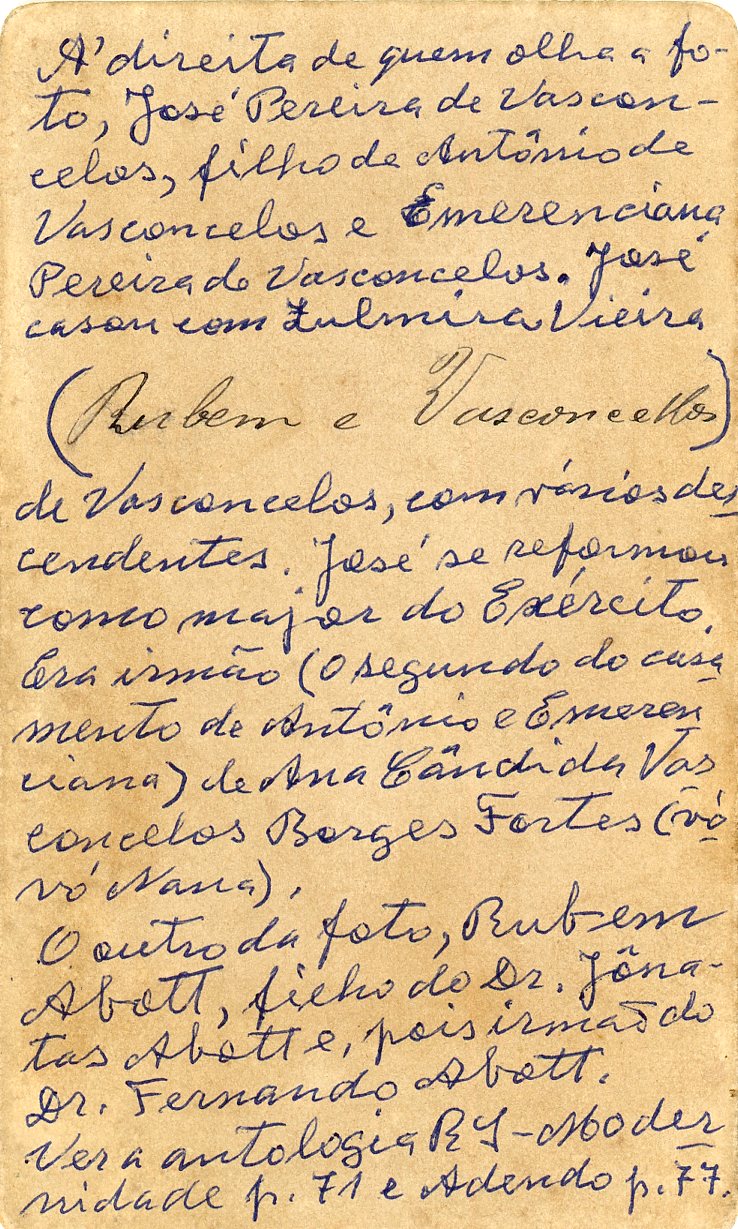 A' direita de quem olha a fo-
to, José Pereira de Vascon-
celos, filho de Antônio de
Vasconcelos e Emerenciana
Pereira de Vasconcelos. José
casou com Zulmira Vieira
(Rubem e Vasconcellos)
de Vasconcelos, com vários des
cendentes. José se reformou
como major do Exército.
Era irmão (o segundo do casa
mento de Antônio e Emeren
ciana) de Ana Cândida Vas
concelos Borges Fortes (vó
vó Nana).
O outro da foto, Rubem
Abott, filho do Dr. Jôna-
tas Abott e, pois irmão do
Dr. Fernando Abott.
Ver a antologia RS-Moder
nidade p. 71 e Adendo p. 77.